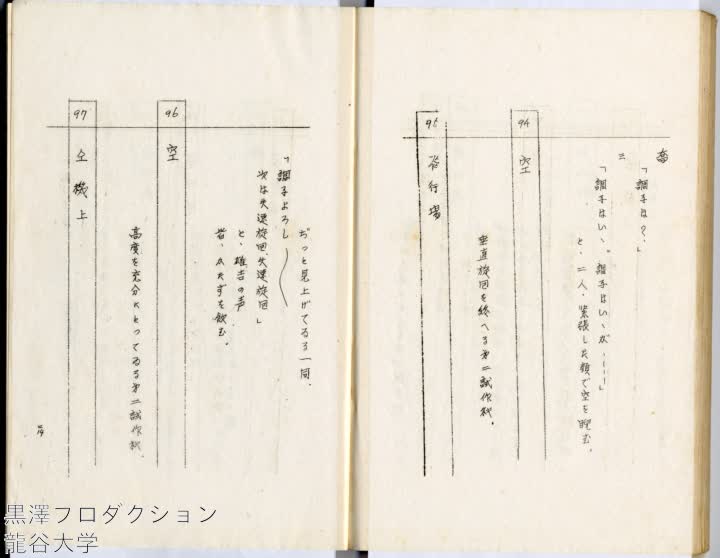 斎
「調子は?」
三
「調子はいゝ。調子はいゝが……」
と、二人、緊張した顔で空を睨む。
94 空
垂直旋回を終へる第二試作機。
95 飛行場
ぢっと見上げてゐる一同。
「調子よろし
次は失速旋回、失速旋回」
と、雄吉の声
皆、かたずを飲む。
96 空
高度を充分にとってゐる第二試作機。
97 仝 機上
黒澤プロダクション
龍谷大学